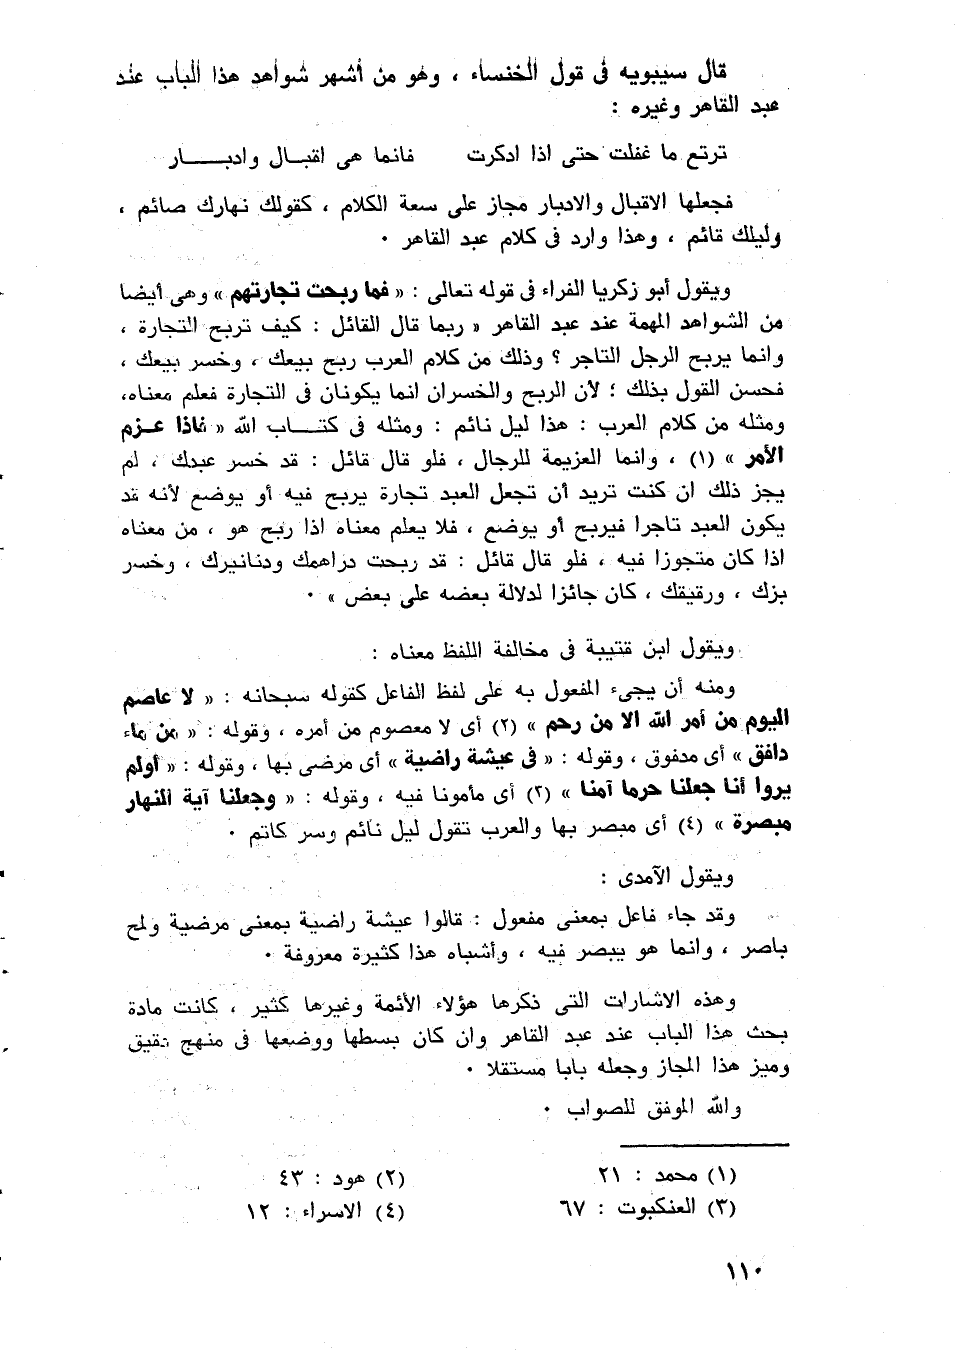 قال سيبويه فى قول الخنساء ، وهو من أشهر شواهد هذا الباب عند
عبد القاهر وغيره :
ترتع ما غفلت حتى اذا ادكرت فانما هى اقبال وادبار
فجعلها الاقبال والادبار مجاز على سعة الكلام ، كقولك نهارك صائم ،
وليلك قائم ، وهذا وارد فى كلام عبد القاهر ٠
ويقول أبو زكريا الفراء فى قوله تعالى : « فما ربحت تجارتهم » وهى أيضا
من الشواهد المهمة عند عبد القاهر « ربما قال القائل : كيف تربح التجارة ،
وانما يربح الرجل التاجر ؟ وذلك من كلام العرب ربح بيعك ، وخسر بيعك ،
فحسن القول بذلك ؛ لأن الربح والخسران انما يكونان فى التجارة فعلم معناه،
ومثله من كلام العرب : هذا ليل نائم : ومثله فى كتاب الله « فاذا عزم
الأمر » (١) ، وانما العزيمة للرجال ، فلو قال قائل : قد خسر عبدك ، لم
يجز ذلك ان كنت تريد أن تجعل العبد تجارة يربح فيه أو يوضع لأنه قد
يكون العبد تاجرا فيربح أو يوضع ، فلا يعلم معناه اذا ربح هو ، من معناه
اذا كان متجوزا فيه ، فلو قال قائل : قد ربحت دراهمك ودنانيرك ، وخسر
بزك ، ورقيقك ، كان جائزا لدلالة بعضه على بعض » ٠
ويقول ابن قتيبة فى مخالفة اللفظ معناه :
ومنه أن يجىء المفعول به على لفظ الفاعل كقوله سبحانه : « لا عاصم
اليوم من أمر الله الا من رحم » (٢) أى لا معصوم من أمره ، وقوله : « من ماء
دافق » أى مدفوق ، وقوله : « فى عيشة راضية » أى مرضى بها ، وقوله : « أولم
يروا أنا جعلنا حرما آمنا » (٢) أى مأمونا فيه ، وقوله : « وجعلنا آية النهار
مبصرة » (٤) أى مبصر بها والعرب تقول ليل نائم وسر كاتم ٠
ويقول الآمدى :
وقد جاء فاعل بمعنى مفعول : قالوا عيشة راضية بمعنى مرضية ولمح
باصر ، وانما هو يبصر فيه ، وأشباه هذا كثيرة معروفة ٠
وهذه الاشارات التى ذكرها هؤلاء الأئمة وغيرها كثير ، كانت مادة
بحث هذا الباب عند عبد القاهر وان كان بسطها ووضعها فى منهج دقيق
وميز هذا المجاز وجعله بابا مستقلا ٠
والله الموفق للصواب ٠
(١) محمد : ٢١ (٢) هود : ٤٣
(٣) العنكبوت : ٦٧ (٤) الاسراء : ١٢
١١٠